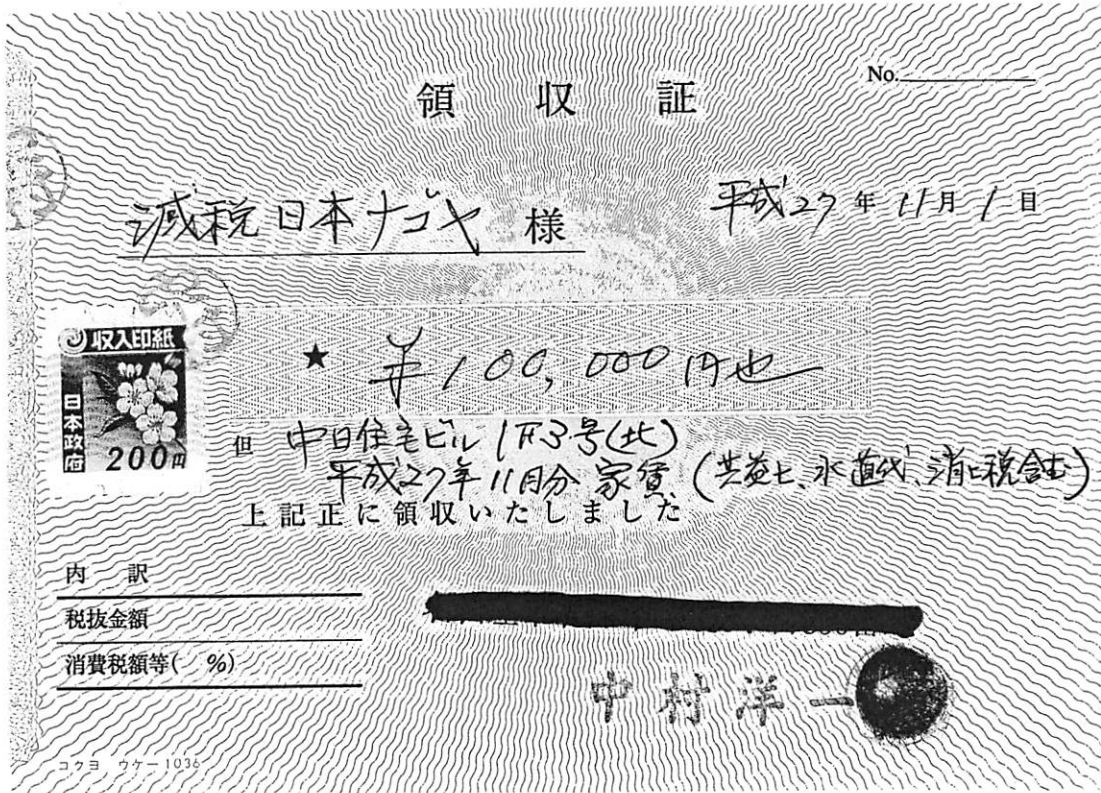 No.
領収証
減税日本ナゴヤ 様
平成27年11月1日
収入印紙
日本政府
200円
★ ¥100,000円也
但 中日住宅ビル1F3号(北)
平成27年11月分 家賃 (共益七、水道代、消ヒ税含む)
上記正に領収いたしました
内訳
税抜金額
消費税額等( %)
中村洋一
コクヨ ウケ-1036